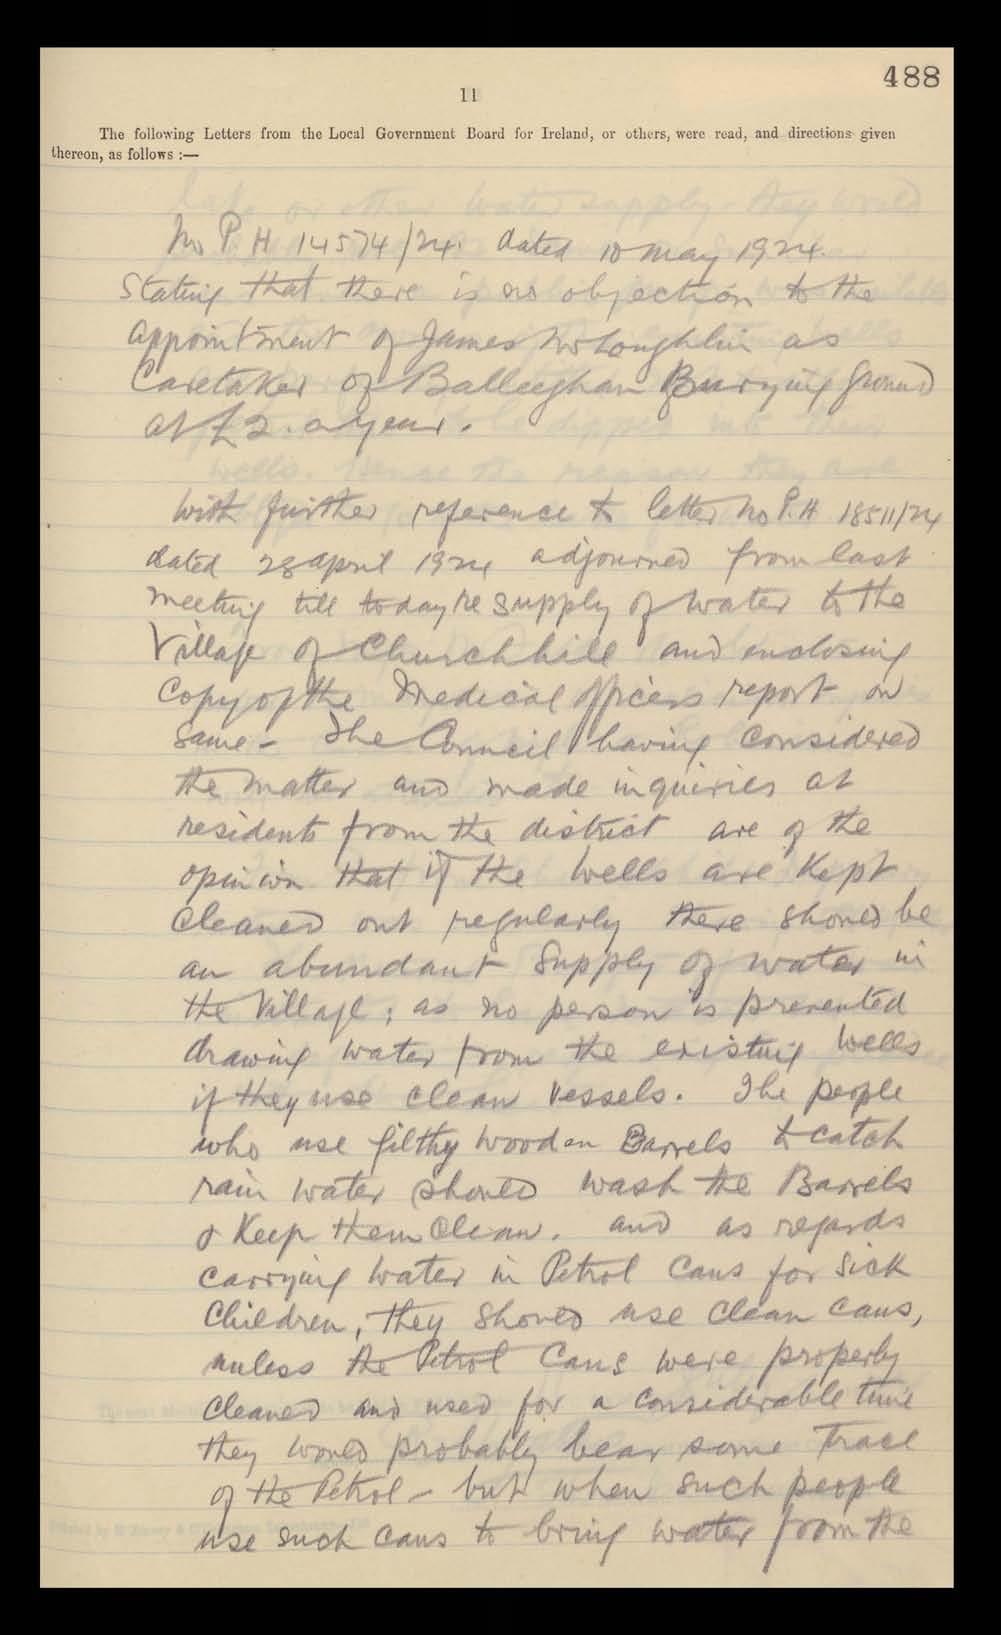 488
11
The following Letters from the Local Government Board for Ireland, or others, were read, and directions given
thereon, as follows :—
No P. H 14574/24. dated 10 May 1924.
Stating that there is no objection to the
appointment of James McLoughlin as
Caretaker of Balleeghan Burying ground
at £2. a year.
With further reference to letter No P.H 18511/24
dated 28 april 1924 adjourned from last
meeting till today re supply of water to the
Village of Churchhill and enclosing
Copy of the Medical Officers report on
same - The Council having considered
the matter and made inquiries at
residents from the district are of the
opinion that if the wells are Kept
Cleaned out regularly there should be
an abundant Supply of water in
the Village ; as no person is prevented
drawing water from the existing wells
if they use clean vessels. The people
who use filthy wooden Barrels to catch
rain water should wash the Barrels
& Keep them Clean. and as regards
carrying water in Petrol Cans for Sick
Children, they should use Clean Cans,
unless the Petrol Cans were properly
Cleaned and used for a Considerable time
they would probably bear some trace
of the Petrol - but when such people
use such cans to bring water from the